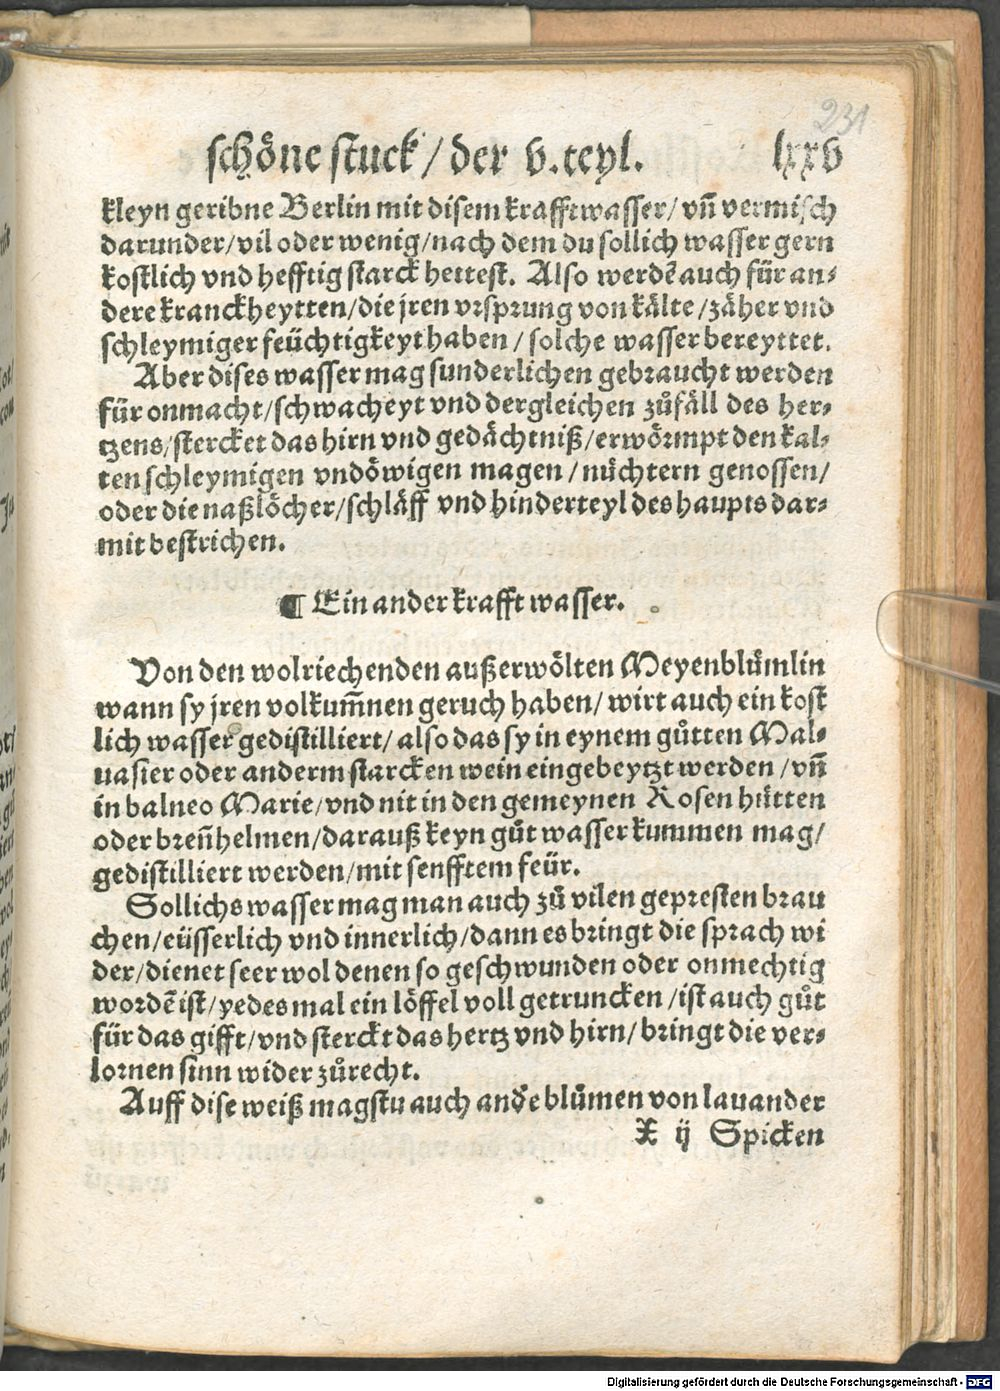 231
schöne stuck / der v. teyl. lxxv
kleyn geribne Berlin mit disem krafftwasser / vnn̄ vermisch
darunder / vil oder wenig / nach dem du sollich wasser gern
kostlich vnd hefftig starck hettest. Also werdē auch für an⸗
dere kranckheytten / die jren vrsprung von kälte / zäher vnd
schleymiger feüchtigkeyt haben / solche wasser bereyttet.
Aber dises wasser mag sunderlichen gebraucht werden
für onmacht / schwacheyt vnd dergleichen zůfäll des her⸗
tzens / stercket das hirn vnd gedächtniß / erwörmpt den kal⸗
ten schleymigen vndöwigen magen / nůchtern genossen /
oder die naßlöcher / schläff vnd hinderteyl des haupts dar⸗
mit bestrichen.
¶ Ein ander krafft wasser.
Von den wolriechenden außerwölten Meyenblůmlin
wann sy jren volkum̄nen geruch haben / wirt auch ein kost
lich wasser gedistilliert / also das sy in eynem gůtten Mal⸗
uasier oder anderm starcken wein eingebeytzt werden / vnn̄
in balneo Marie / vnd nit in den gemeynen Rosen hütten
oder breñhelmen / darauß keyn gůt wasser kummen mag /
gedistilliert werden / mit senfftem feür.
Sollichs wasser mag man auch zů vilen gepresten brau
chen / eüsserlich vnd innerlich / dann es bringt die sprach wi
der / dienet seer wol denen so geschwunden oder onmechtig
wordē ist / yedes mal ein löffel voll getruncken / ist auch gůt
für das gifft / vnd sterckt das hertz vnd hirn / bringt die ver⸗
lornen sinn wider zůrecht.
Auff dise weiß magstu auch anďe blůmen von lauander
X ij Spicken
Digitalisierung gefördert durch die Deutsche Forschungsgemeinschaft - DFG